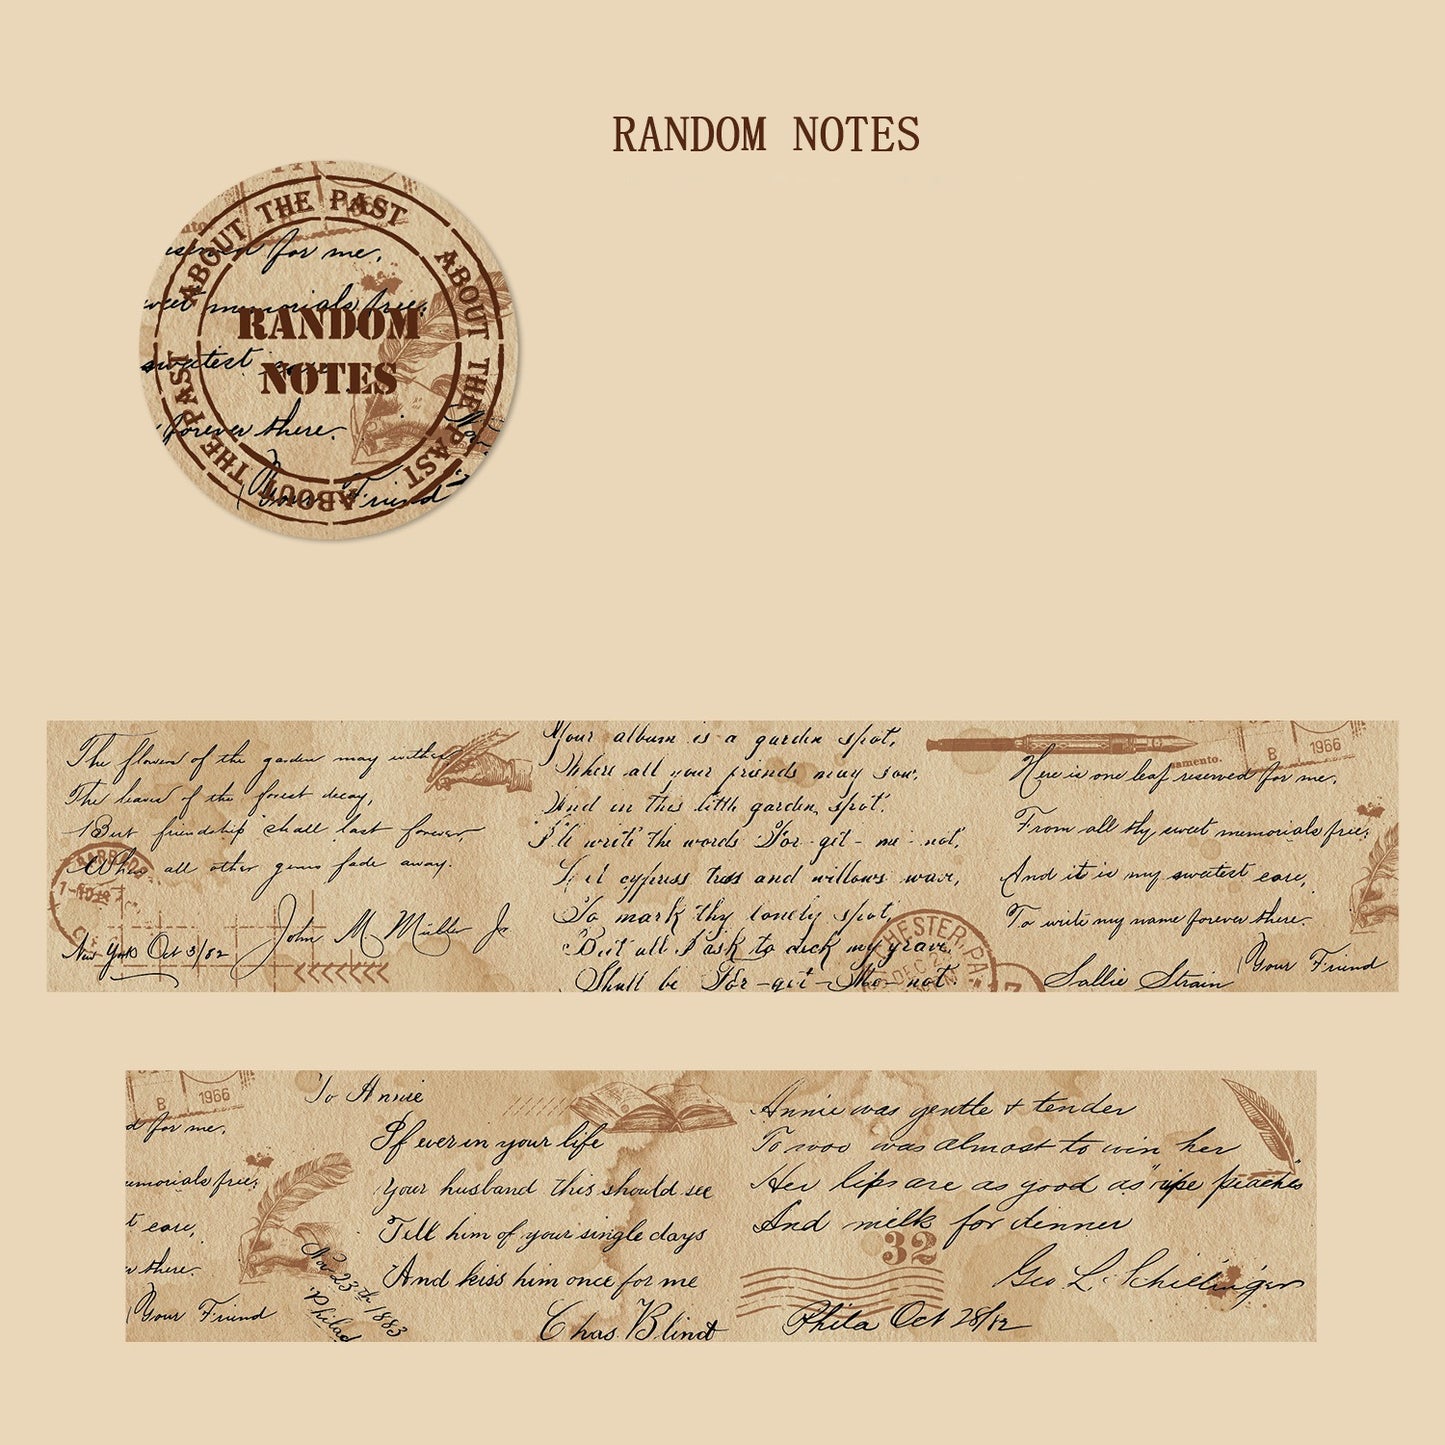 RANDOM NOTES
ABOUT THE PAST ABOUT THE PAST ABOUT THE PAST
for me,
sweet memorials free;
RANDOM
sweetest
NOTES
forever there.
Your Friend
The flowers of the garden may wither
The leaves of the forest decay,
But friendship shall last forever,
When all other gems fade away.
New York Oct 3/82
John M Muller Jr
Your album is a garden spot,
Where all your friends may sow,
And in this little garden spot,
I'll write the words For-get-me-not,
Let cypress trees and willows wave,
To mark thy lonely spot,
But all I ask to deck my grave,
Shall be For-get-Me-not
CHESTER, PA.
DEC 2
B
1966
samento.
Here is one leaf reserved for me,
From all thy sweet memorials free;
And it is my sweetest care,
To write my name forever there.
Your Friend
Sallie Strain
B
1966
d for me,
emorials free;
t care,
there.
Your Friend
Nov 23th 1883
Philad
To Annie
If ever in your life
Your husband this should see
Tell him of your single days
And kiss him once for me
Chas. Blind
Annie was gentle & tender
To woo was almost to win her
Her lips are as good as "ripe peaches"
And milk for dinner
32
Geo L. Schillinger
Phila Oct 28/82